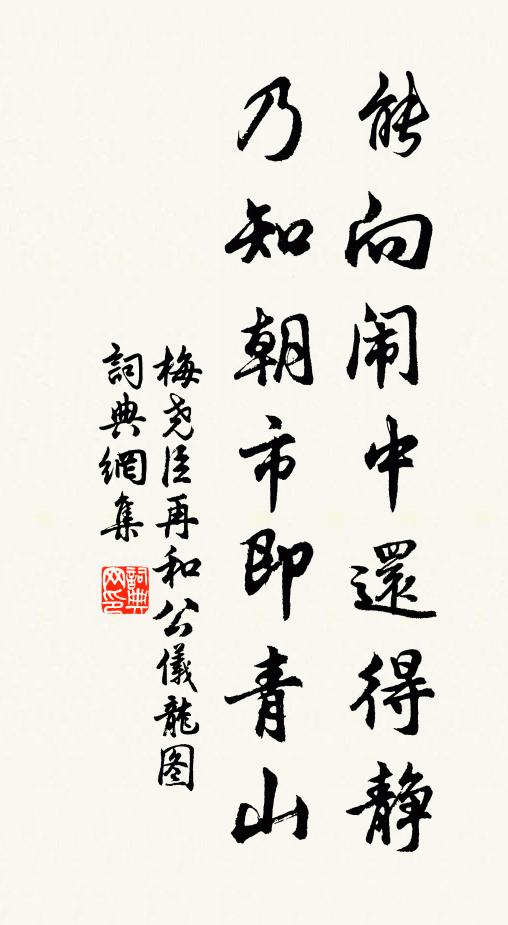 能向闹中還得静
乃知朝市即青山
梅尧臣再和公儀龍图
詞典網集
詞典网印